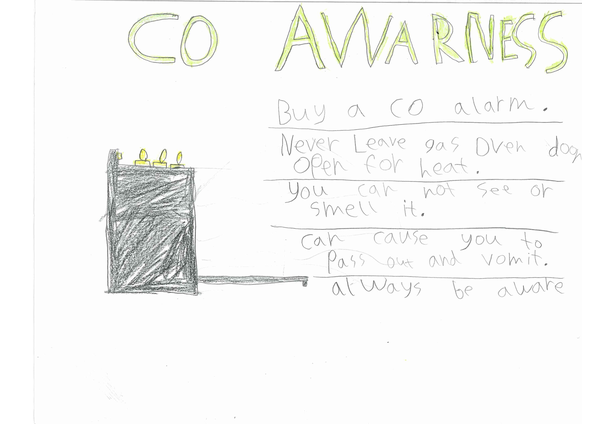 CO AWARNESS
Buy a CO alarm.
Never Leave gas Oven door
Open for heat.
You can not see or
smell it.
can cause you to
Pass out and vomit.
always be aware